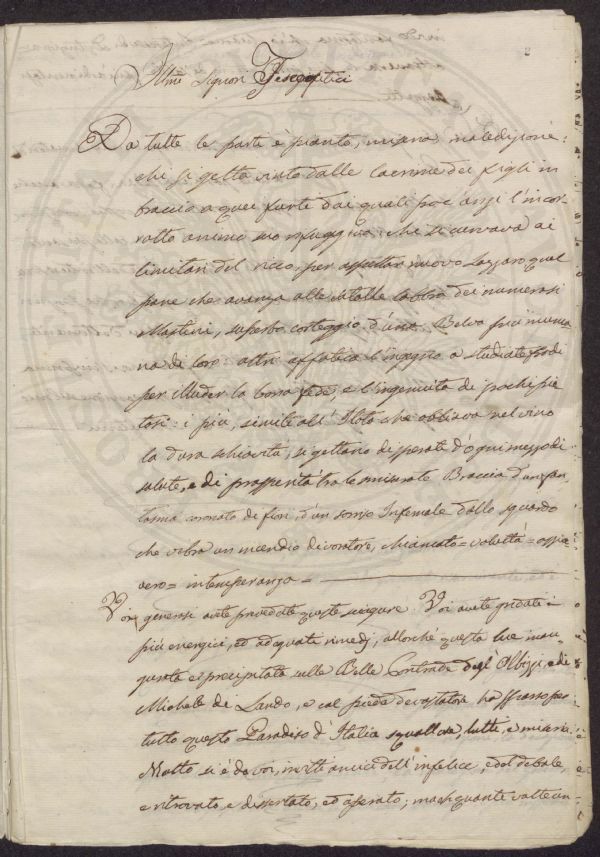 2
Illmi Signori
Da tutte le parti è pianto, miseria, maledizione:
chi si getta vinto dalle lacrime dei figli in
braccio a quei furti dai quali poc'anzi l'incor-
rotto animo suo rifuggiva: chi si curvava ai
limitari del ricco, per aspettar nuovo Lazzaro quel
pane che avanza alle labbra dei numerosi
Mastini, superbo corteggio d'una Belva più inuma-
na di loro: altri affatica l'ingegno a studiate frodi
per illuder la bona fede, e l'ingenuità di pochi pie-
tosi: i più, simili all'Iloto che obliava nel vino
la dura schiavitù, si gettano disperati d'ogni mezzo di
salute, e di prosperità tra le smisurate Braccia d'un fan-
tasma coronato di fiori, d'un sorriso Infernale dallo sguardo
che vibra un incendio divoratore, chiamato = voluttà = ossia
vero = intemperanza =
Voi generosi avete prevedute queste sciagure Voi avete gridati i
più energici, ed adequati rimedj, allorchè questa lue inau-
gurata è precipitata sulle Belle Contrade degl'Albizzi, e di
Michele di Lando, e col piede devastatore ha sparso per
tutto questo Paradiso d'Italia squallore, lutti, e miseria.
Molto si è da voi, invitti amici dell'infelice, e del debole,
e ritrovato, e dissertato, ed operato; ma oh quante volte un-